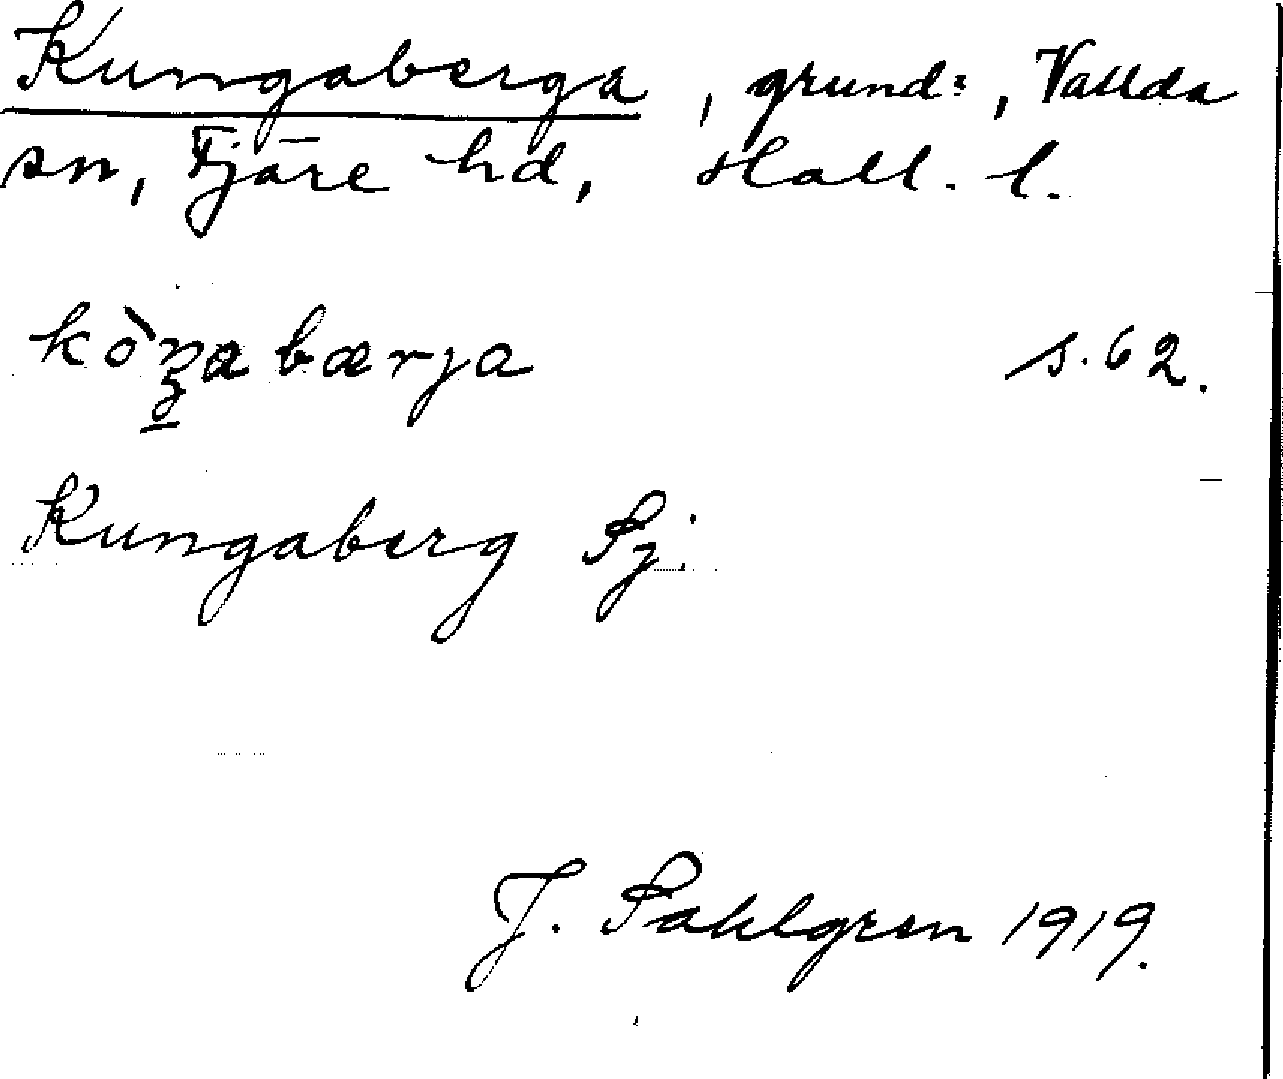 Kungaberga, grund:, Vallda
sn, Fjäre hd, Hall. l.
kò̱ŋabærja s. 62.
Kungaberg Sj.
J. Sahlgren 1919.